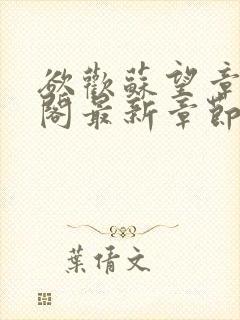 欲歡蘇望章
閣最新章節
葉倩文